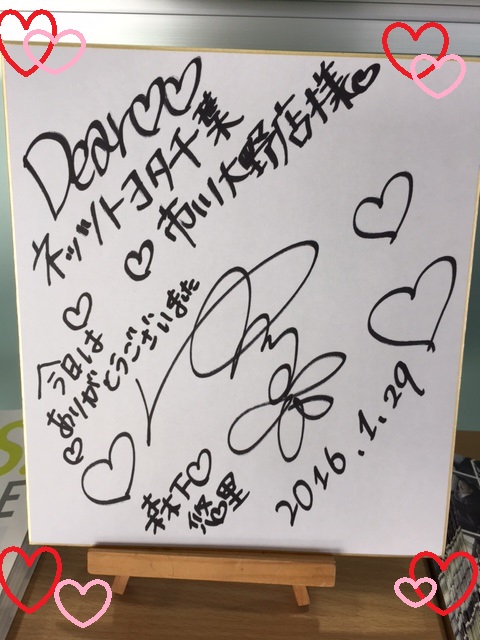 Dear♡♡
ネッツトヨタ千葉
市川大野店様♡
今日は
ありがとうございました
森下♡
悠里
2016.1.29